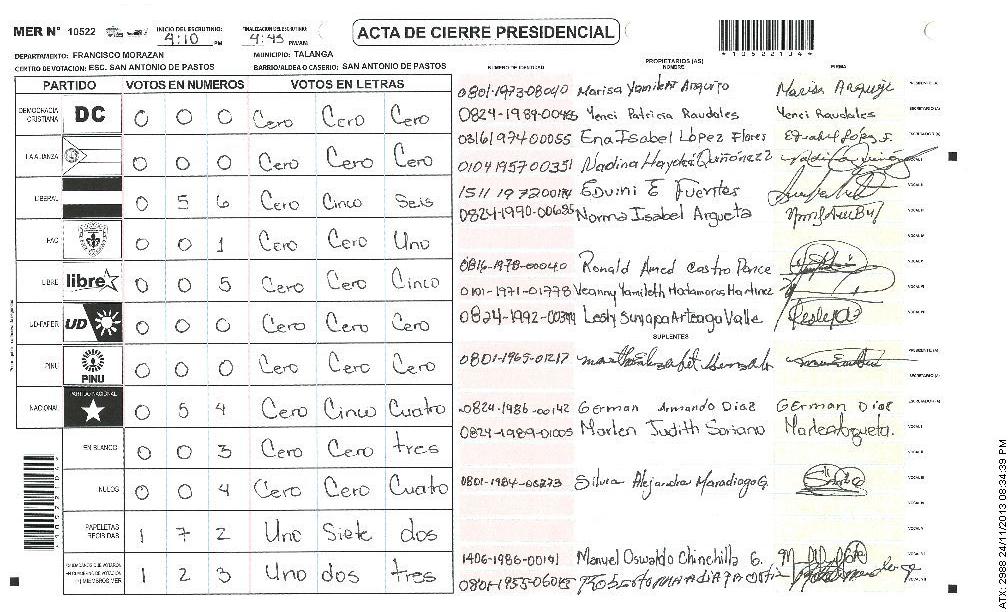 MER N° 10522 INICIO DEL ESCRUTINIO: 4:10 PM FINALIZACION DEL ESCRUTINIO: 4:45 PM/AM
ACTA DE CIERRE PRESIDENCIAL
10522134
DEPARTAMENTO: FRANCISCO MORAZAN MUNICIPIO: TALANGA
CENTRO DE VOTACION: ESC. SAN ANTONIO DE PASTOS BARRIO/ALDEA O CASERIO: SAN ANTONIO DE PASTOS
PARTIDO VOTOS EN NUMEROS VOTOS EN LETRAS
DEMOCRACIA CRISTIANA DC 0 0 0 Cero Cero Cero
LA ALIANZA 0 0 0 Cero Cero Cero
LIBERAL 0 5 6 Cero Cinco Seis
PAC 0 0 1 Cero Cero Uno
LIBRE libre 0 0 5 Cero Cero Cinco
UD-FAPER UD 0 0 0 Cero Cero Cero
PINU PINU 0 0 0 Cero Cero Cero
NACIONAL PARTIDO NACIONAL 0 5 4 Cero Cinco Cuatro
EN BLANCO 0 0 3 Cero Cero tres
NULOS 0 0 4 Cero Cero Cuatro
PAPELETAS RECIBIDAS 1 7 2 Uno Siete dos
1 2 3 Uno dos tres
NUMERO DE IDENTIDAD PROPIETARIOS (AS) NOMBRE FIRMA
0801-1973-08040 Marisa Yamileth Arguijo
0824-1989-00485 Yenci Patricia Raudales Yenci Raudales
0316197400055 Ena Isabel López Flores
0104195700351 Nadina Haydeé Quiñónez
1511 1972 Eduini E Fuentes
0824-1990-00685 Norma Isabel Argueta
0816-1978-00040 Ronald Amed Castro Ponce
0101-1971-01778 Yeanny Yamileth Matamoros Martinez
0824-1992- Lesly Suyapa Arteaga Valle
SUPLENTES
0801-1965-01217
0824-1986-00142 German Armando Diaz German Diaz
0824-1989-01005 Marlen Judith Soriano
0801-1984-05273 Silvia Alejandra Maradiaga G.
1406-1986-00141 Manuel Oswaldo Chinchilla G.
0801-1955-
ATX-2988 24/11/2013 08:34:39 PM